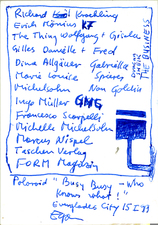 Richard Kroehling
Erich Mönnius KF
The Thing Wolfgang + Gisela
Gilles Danièlle + Fred
Dina Allgäuer Gabriella
Marie Louise Spieres
Michelsohn Nan Goldin
Ingo Müller GMG
Francesco Scarpelli
Michelle Michelsohn
Marcus Nispel
Taschen Verlag
FORM Magazin
THE BUSINESS
Polaroid "Busy Busy - Who
knows what!"
Everglades City 15 I 93